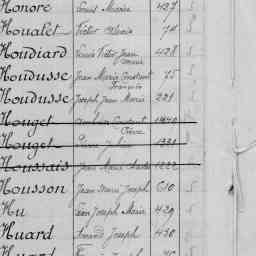 Honoré Louis Marie 427
Houalet Victor Alexis 74
Houdiard Louis Victor Jean 428
Marie
Houdusse Jean Marie Constant 75
François
Houdusse Joseph Jean Marie 221
Houget Constant
Pierre
Houget Pierre 1331
Houssais Jean Marie 1222
Housson Jean Marie Joseph 610
Hu Jean Joseph Marie 429
Huard Armand Joseph 430
Huard